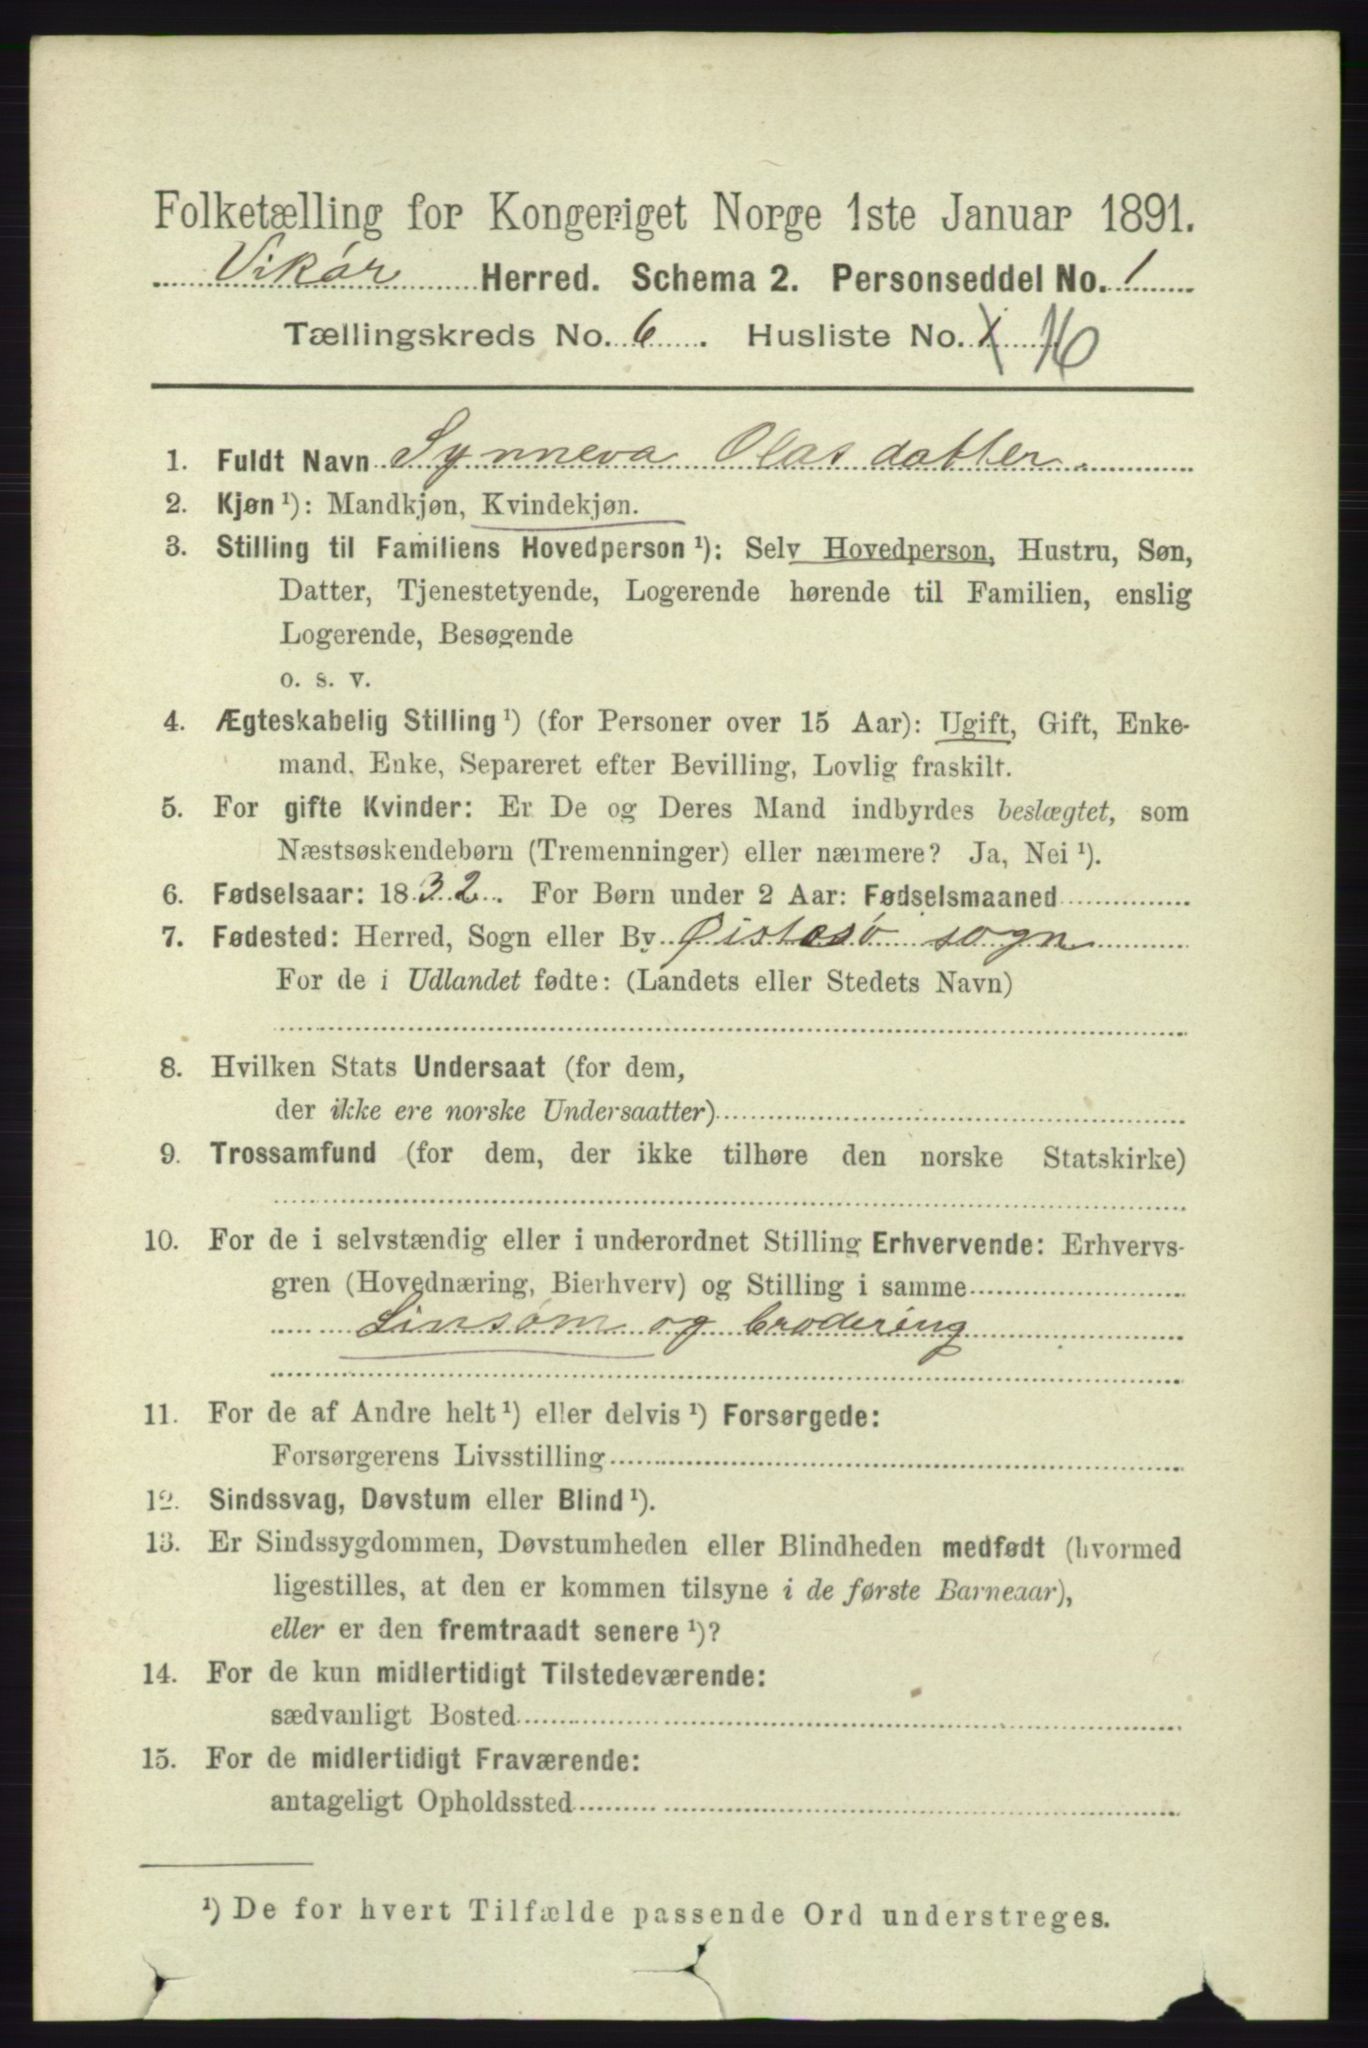 Folketælling for Kongeriget Norge 1ste Januar 1891.
Vikør Herred. Schema 2. Personseddel No. 1
Tællingskreds No. 6. Husliste No. 1 16
1. Fuldt Navn Synneva Olasdatter.
2. Kjøn ¹): Mandkjøn, Kvindekjøn.
3. Stilling til Familiens Hovedperson ¹): Selv Hovedperson, Hustru, Søn,
Datter, Tjenestetyende, Logerende hørende til Familien, enslig
Logerende, Besøgende
o. s. v.
4. Ægteskabelig Stilling ¹) (for Personer over 15 Aar): Ugift, Gift, Enke-
mand, Enke, Separeret efter Bevilling, Lovlig fraskilt.
5. For gifte Kvinder: Er De og Deres Mand indbyrdes beslægtet, som
Næstsøskendebørn (Tremenninger) eller nærmere? Ja, Nei ¹).
6. Fødselsaar: 1832. For Børn under 2 Aar: Fødselsmaaned
7. Fødested: Herred, Sogn eller By Øistesø sogn
For de i Udlandet fødte: (Landets eller Stedets Navn)
8. Hvilken Stats Undersaat (for dem,
der ikke ere norske Undersaatter)
9. Trossamfund (for dem, der ikke tilhøre den norske Statskirke)
10. For de i selvstændig eller i underordnet Stilling Erhvervende: Erhvervs-
gren (Hovednæring, Bierhverv) og Stilling i samme
Linsøm og brodering
11. For de af Andre helt ¹) eller delvis ¹) Forsørgede:
Forsørgerens Livsstilling
12. Sindssvag, Døvstum eller Blind ¹).
13. Er Sindssygdommen, Døvstumheden eller Blindheden medfødt (hvormed
ligestilles, at den er kommen tilsyne i de første Barneaar),
eller er den fremtraadt senere ¹)?
14. For de kun midlertidigt Tilstedeværende:
sædvanligt Bosted
15. For de midlertidigt Fraværende:
antageligt Opholdssted
¹) De for hvert Tilfælde passende Ord understreges.